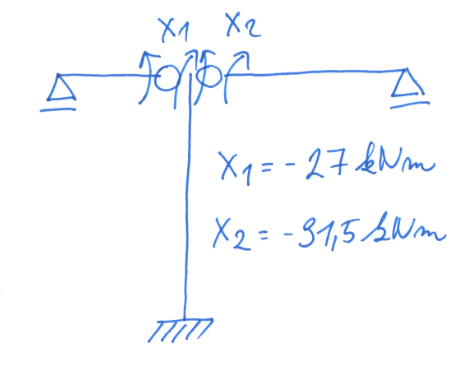 X1 X2
X1 = - 27 kNm
X2 = - 31,5 kNm